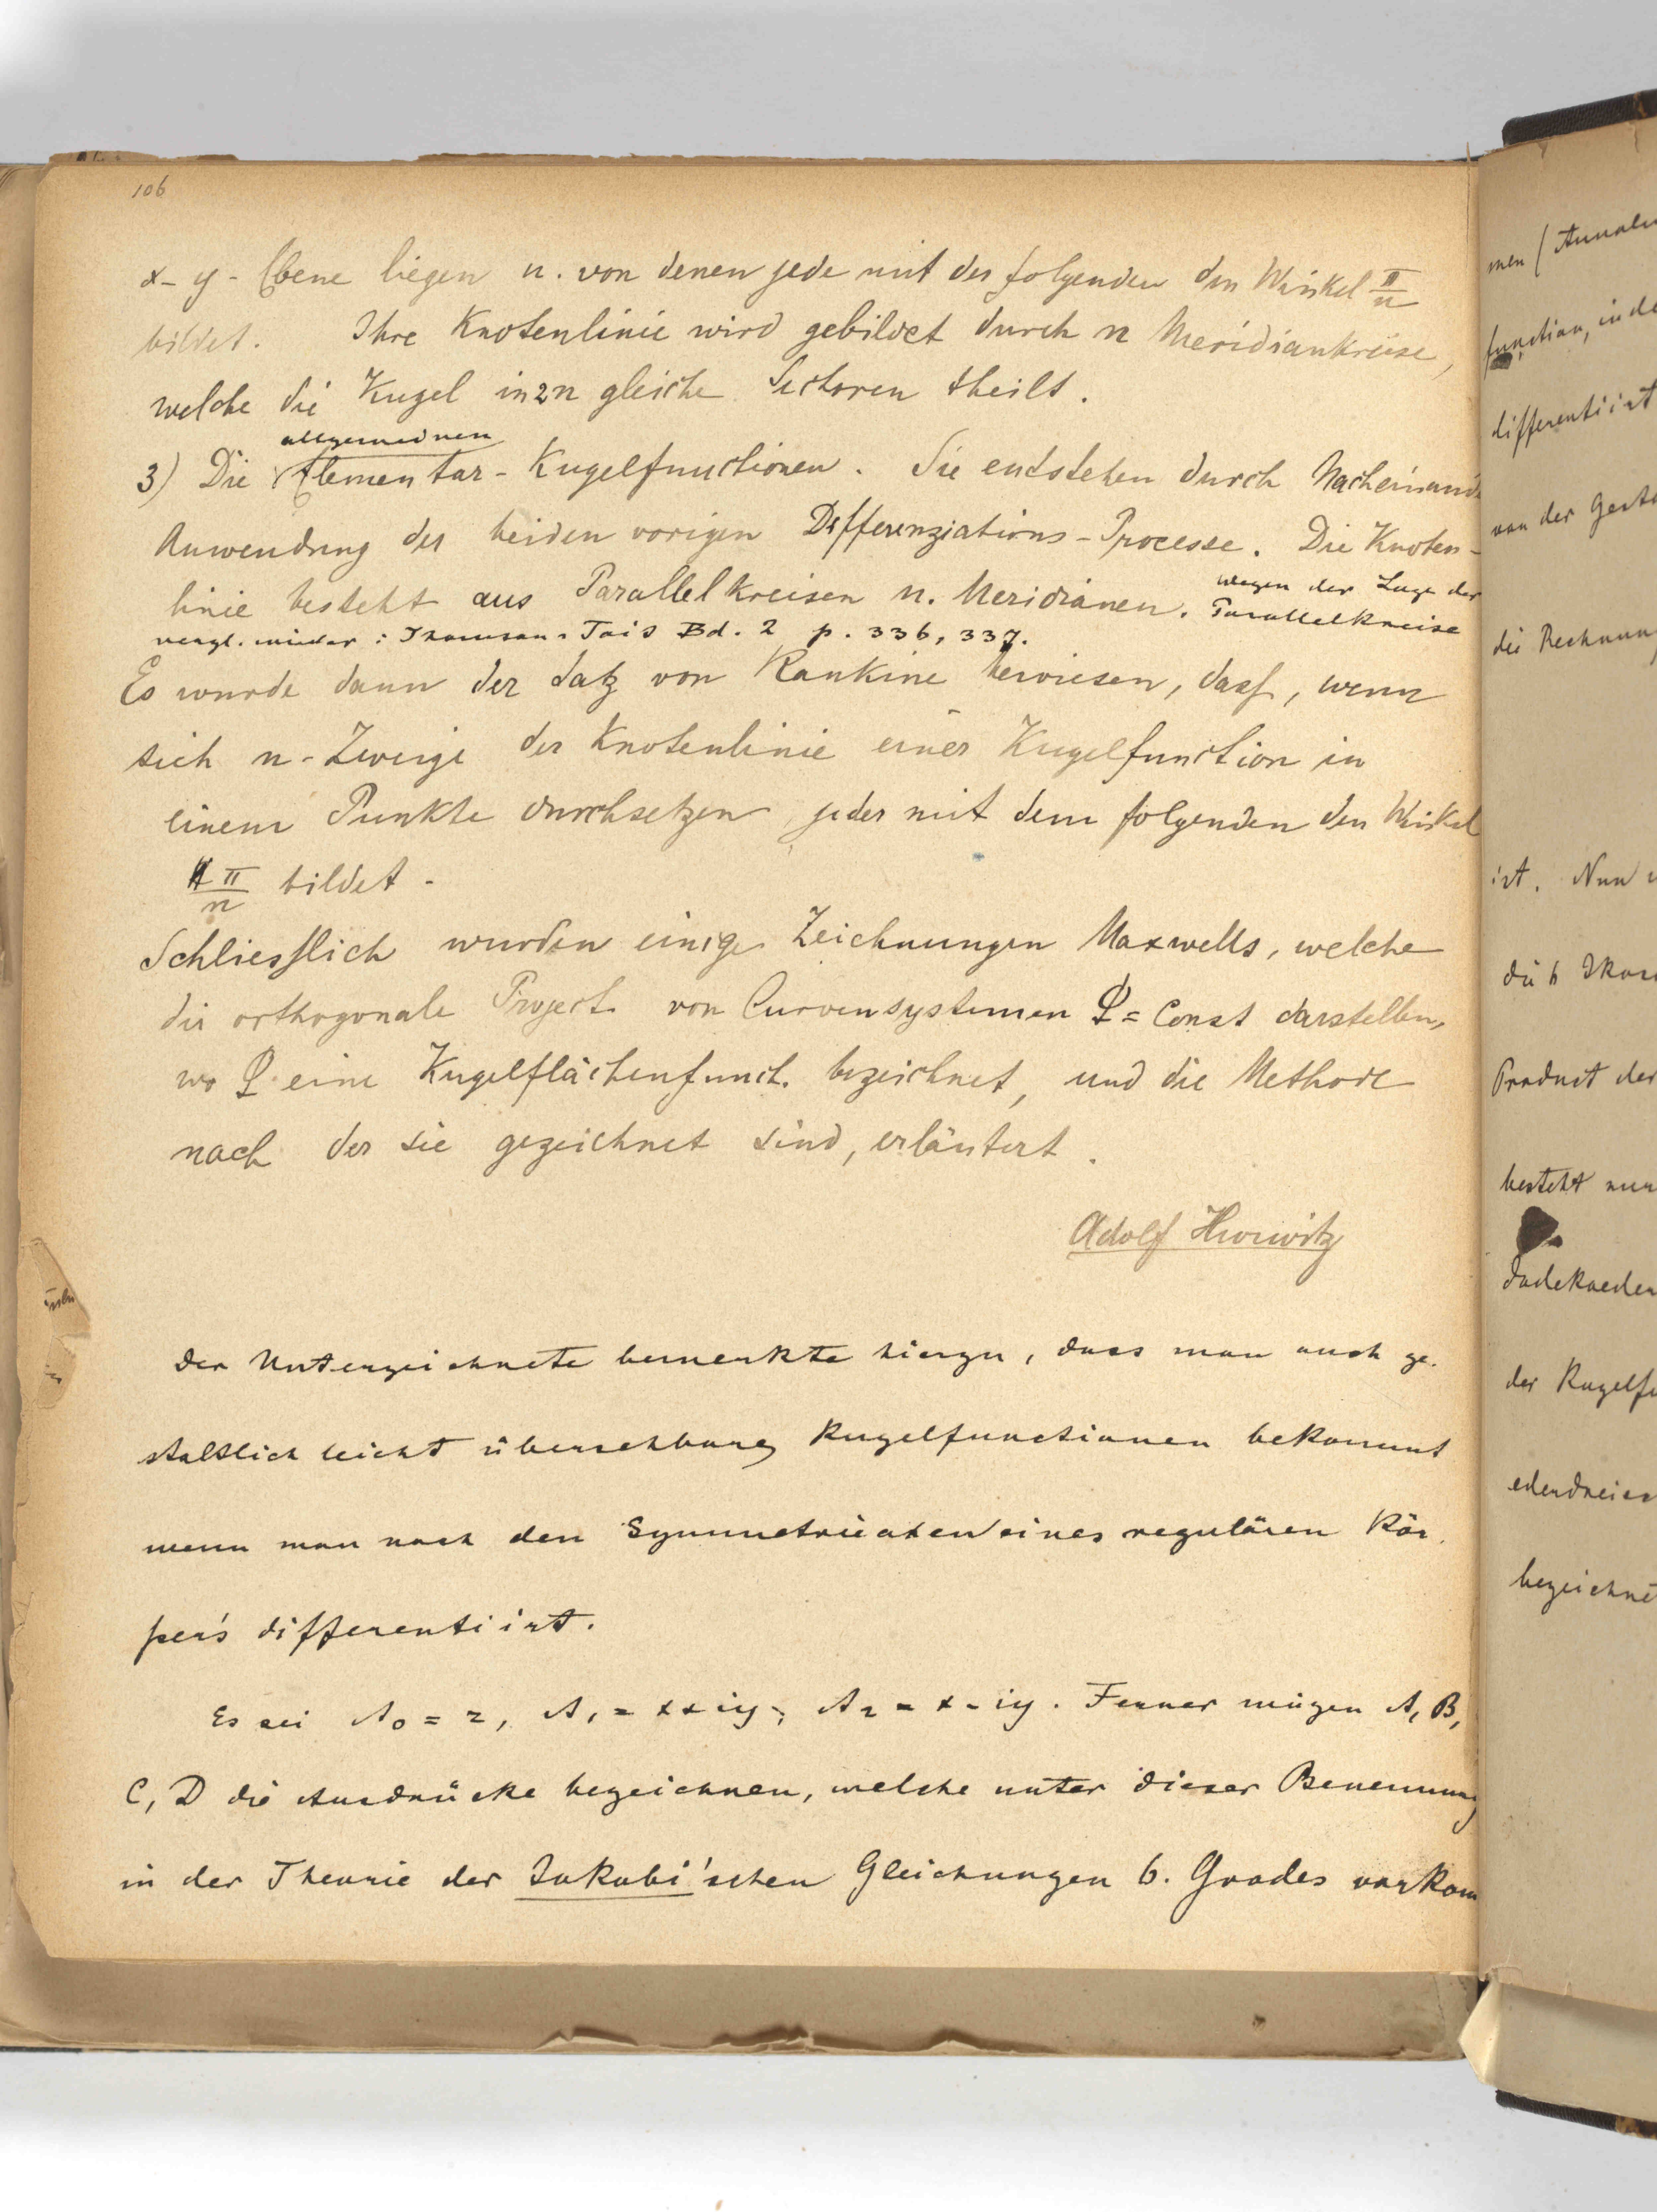 106
x-y-Ebene liegen u. von denen jede mit der folgenden den Winkel π/n
bildet. Ihre Knotenlinie wird gebildet durch n Meridiankreise,
welche die Kugel in 2n gleiche Sectoren theilt.
allgemeinen
3) Die Elementar-Kugelfunctionen. Sie entstehen durch Nacheinand
Anwendung der beiden vorigen Differenziations-Processe. Die Knoten-
linie besteht aus Parallelkreisen u. Meridianen. wegen der Lage der
Parallelkreise
vergl. wieder: Thomson-Tait Bd. 2 p. 336, 337.
Es wurde dann der Satz von Rankine bewiesen, dass, wenn
sich n-Zweige der Knotenlinie einer Kugelfunction in
einem Punkte durchsetzen, jeder mit dem folgenden den Winkel
π/n bildet.
Schliesslich wurden einige Zeichnungen Maxwells, welche
die orthogonale Project. von Curvensystemen Ω = Const darstellen,
wo Ω eine Kugelflächenfunct. bezeichnet, und die Methode
nach der sie gezeichnet sind, erläutert.
Adolf Hurwitz
Der Unterzeichnete bemerkte hierzu, dass man auch ge-
staltlich leicht übersehbare Kugelfunctionen bekommt
wenn man nach den Symmetrieaxen eines regulären Kör-
pers differentiirt.
Es sei A₀ = z, A₁ = x+iy, A₂ = x-iy. Ferner mögen A, B,
C, D die Ausdrücke bezeichnen, welche unter dieser Benennung
in der Theorie der Jakobi'schen Gleichungen 6. Grades vorkom
men (Annalen
function, in de
differentiirt
von der Gesta
die Rechnung
ist. Nun
die 6 Ikos
Product der
besteht nun
Dodekaeder
der Kugelfu
bezeichnet